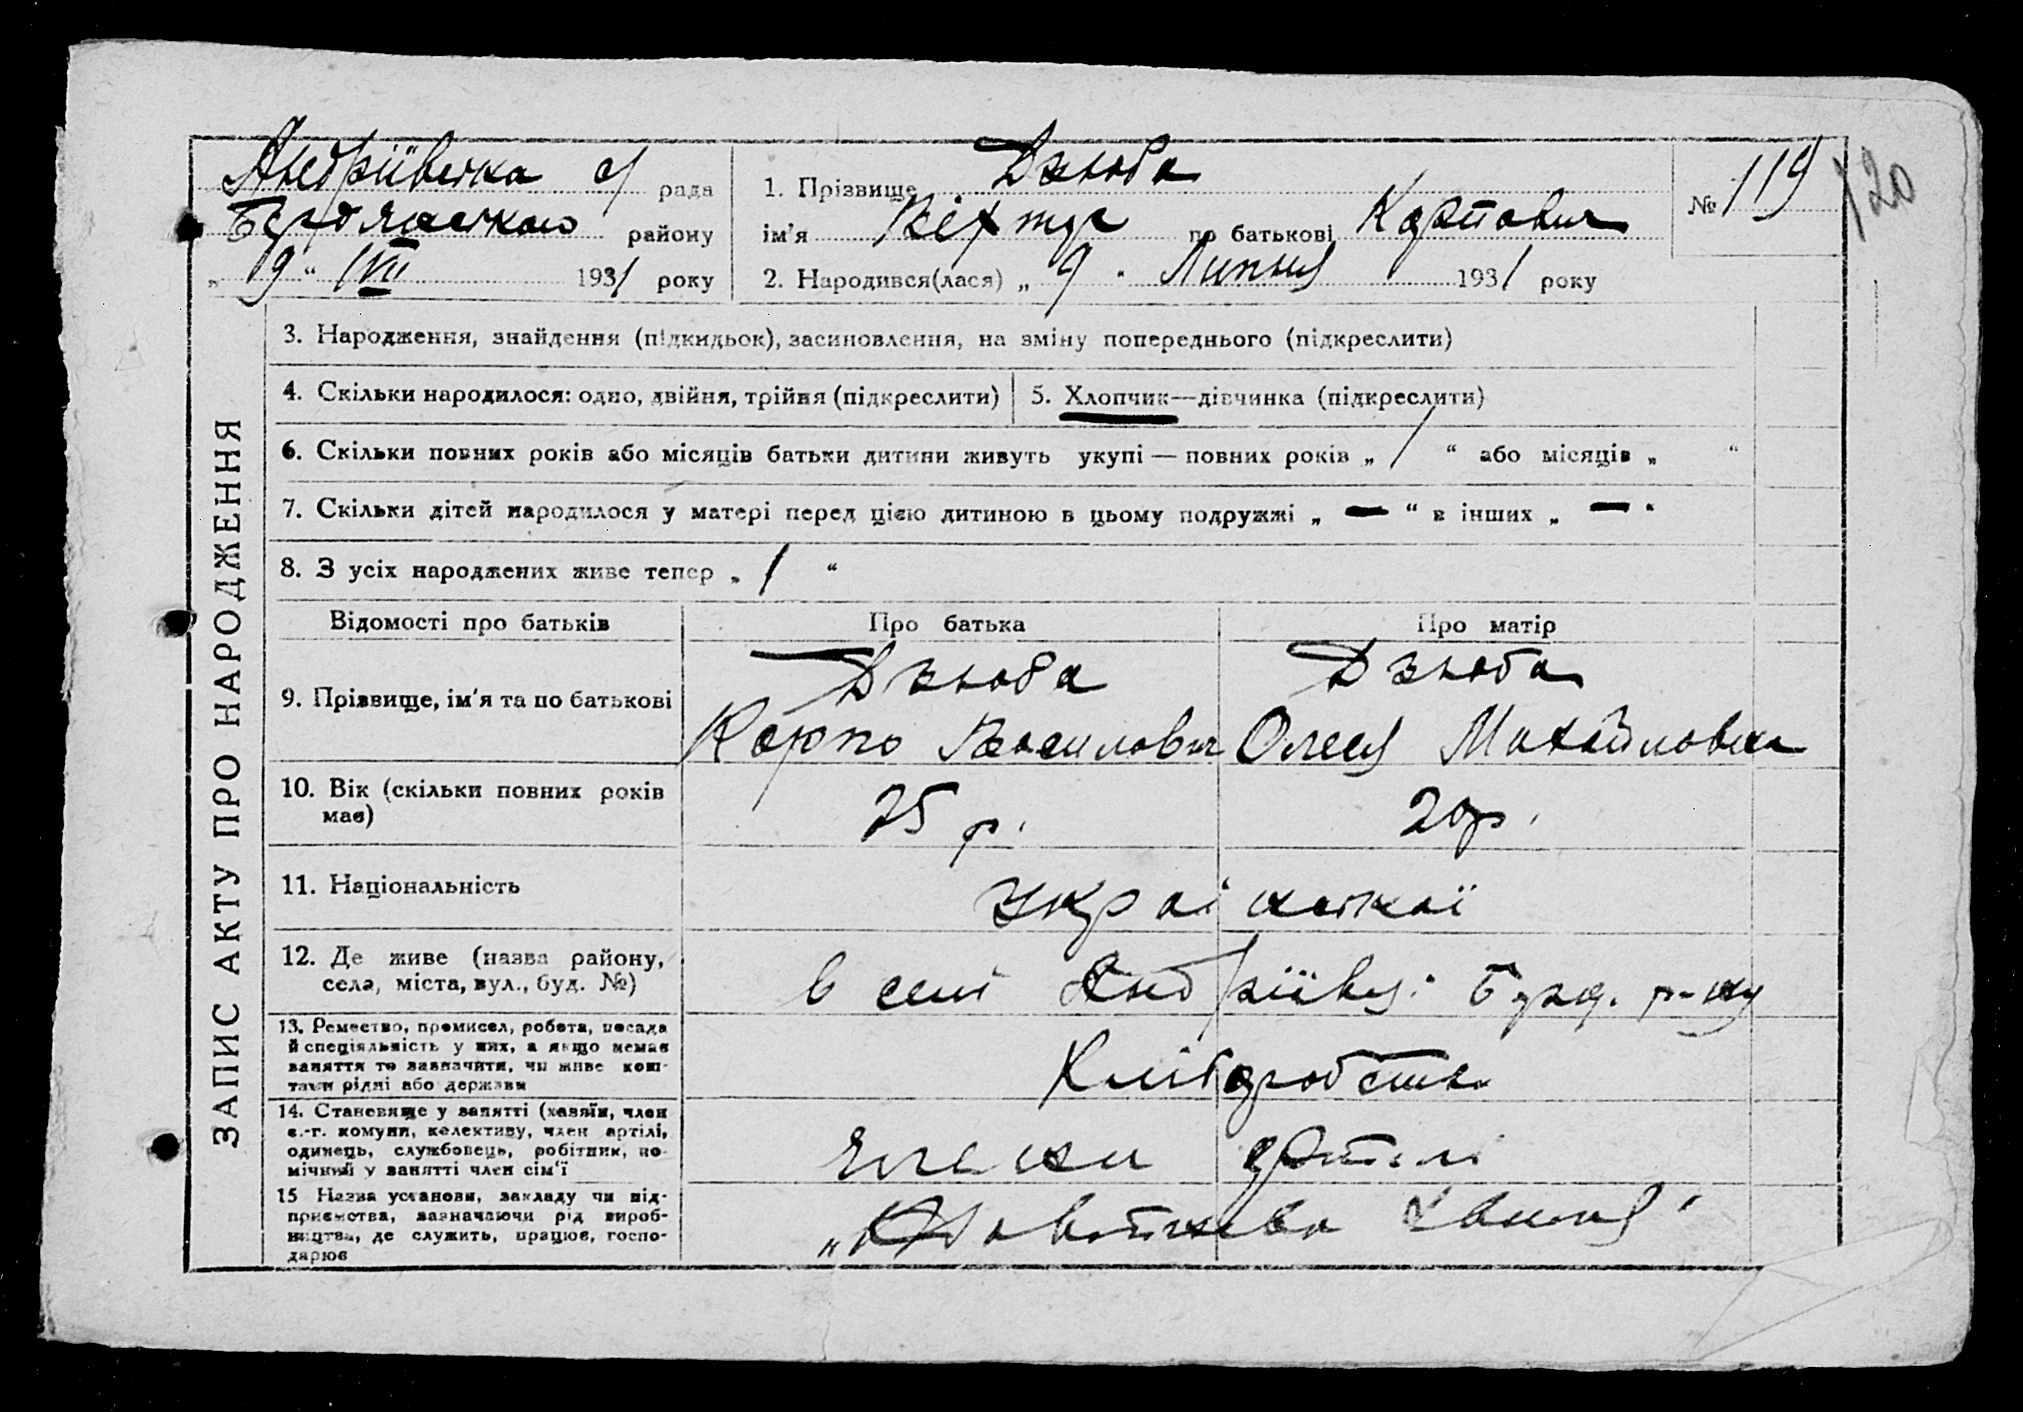 Андріївська с/ рада
Бердянського району
„ 9 “ VII 1931 року
1. Прізвище Дзюба
ім'я Віктор по батькові Карпович
2. Народився(лася) „ 9 “ Липня 1931 року
№ 119
120
ЗАПИС АКТУ ПРО НАРОДЖЕННЯ
3. Народження, знайдення (підкидьок), засиновлення, на зміну попереднього (підкреслити)
4. Скільки народилося: одно, двійня, трійня (підкреслити)
5. Хлопчик—дівчинка (підкреслити)
6. Скільки повних років або місяців батьки дитини живуть укупі — повних років „ 1 “ або місяців „ “
7. Скільки дітей народилося у матері перед цією дитиною в цьому подружжі „ — “ в інших „ — “
8. З усіх народжених живе тепер „ 1 “
Відомості про батьків Про батька Про матір
9. Прізвище, ім'я та по батькові
Дзюба
Карпо Василович
Дзюба
Олеся Михайловна
10. Вік (скільки повних років
має)
25 р. 20 р.
11. Національність
української
12. Де живе (назва району,
села, міста, вул., буд. №)
в селі Андріївці Берд. р-ну
13. Ремество, промисел, робота, посада
й спеціяльність у них, а якщо немає
заняття то зазначити, чи живе кош-
тами рідні або держави
Хліборобство
14. Становище у занятті (хазяїн, член
с.-г. комуни, колективу, член артілі,
одинець, службовець, робітник, по-
мічний у занятті член сім'ї
члени артілі
15 Назва установи, закладу чи під-
приємства, зазначаючи рід вироб-
ництва, де служить, працює, госпо-
дарює
хвиля